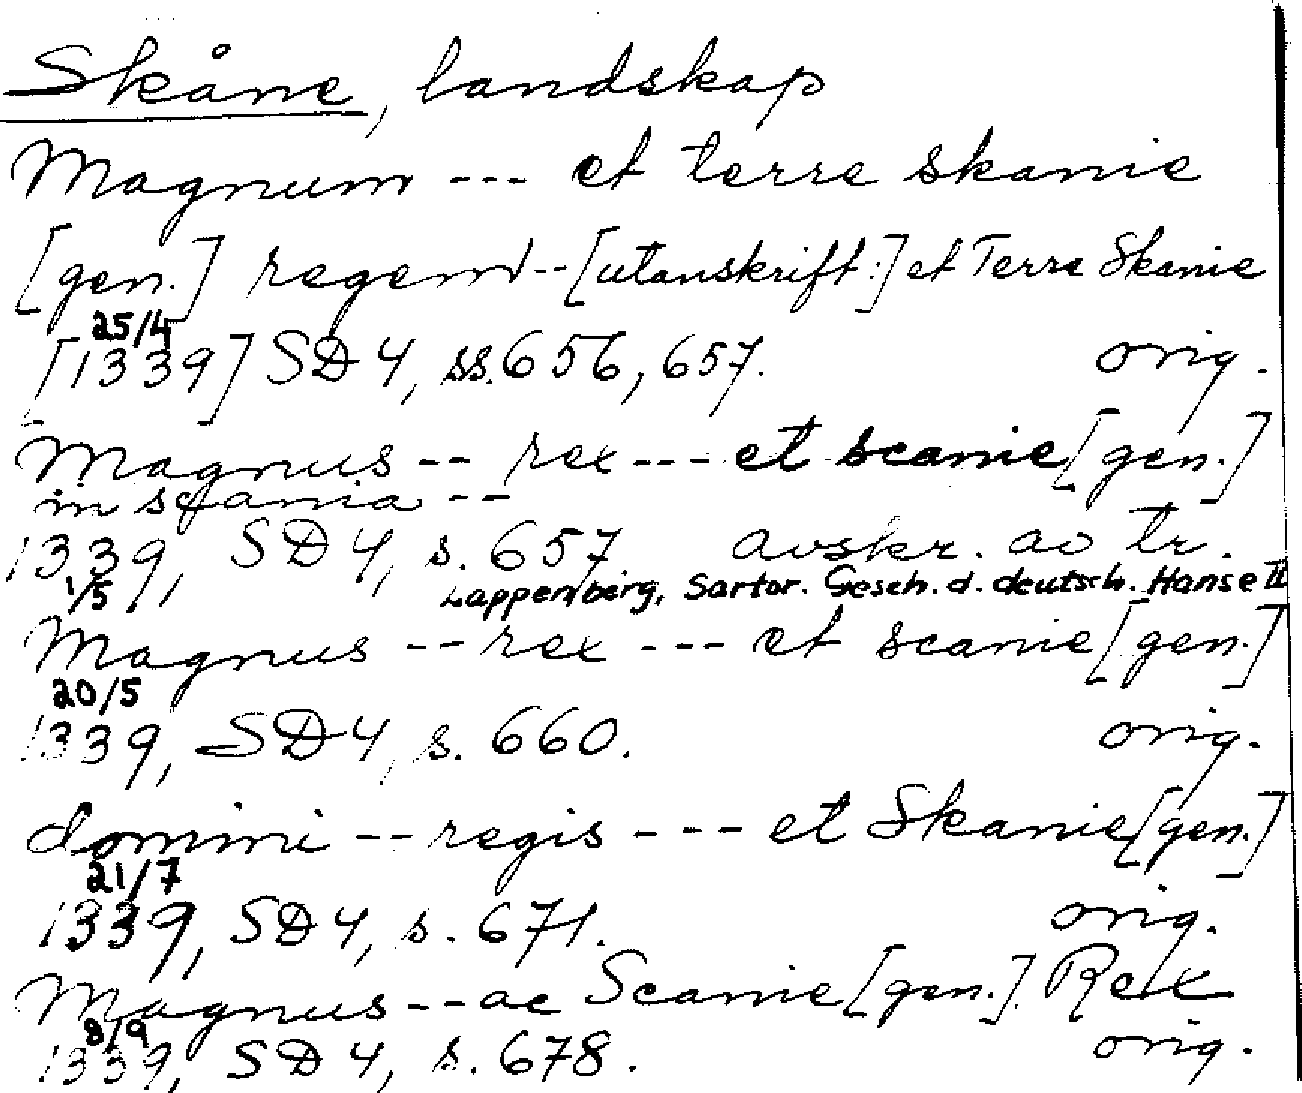 Skåne, landskap
Magnum --- et terre skanie
[gen.] regem -- [utanskrift:] et Terre Skanie
25/4
[1339] SD 4, ss. 656, 657. orig.
Magnus -- rex --- et scanie [gen.]
in scania --
1339, SD 4, s. 657 avskr. av tr.
1/5 Lappenberg, Sartor. Gesch. d. deutsch. Hanse II
Magnus -- rex --- et scanie [gen.]
20/5
1339, SD 4, s. 660. orig.
domini -- regis --- et Skanie [gen.]
21/7
1339, SD 4, s. 671. orig.
Magnus -- ac Scanie [gen.] Rex
8/9
1339, SD 4, s. 678. orig.